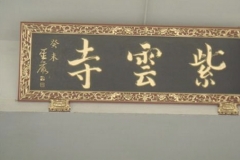 紫雲寺
癸未